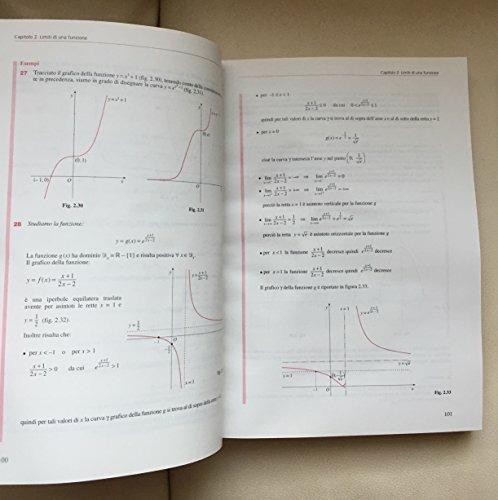 Capitolo 2 Limiti di una funzione
Esempi
27 Tracciato il grafico della funzione y = x³ + 1 (fig. 2.30), tenendo conto delle
te in precedenza, siamo in grado di disegnare la curva (fig. 2.31).
y
y = x³ + 1
(0, 1)
(– 1, 0)
O
x
Fig. 2.30
y
O
x
Fig. 2.31
28 Studiamo la funzione:
y = g(x) = e^((x+1)/(2x−2))
La funzione g (x) ha dominio = ℝ – {1} e risulta positiva ∀ x ∈
Il grafico della funzione:
y = f(x) = (x + 1)/(2x – 2)
è una iperbole equilatera traslata
avente per asintoti le rette x = 1 e
y = 1/2 (fig. 2.32).
Inoltre risulta che:
• per x < –1 o per x > 1
(x+1)/(2x–2) > 0 da cui e^((x+1)/(2x−2)) > 1
y
y = 1/2
–1
O
x
x = 1
quindi per tali valori di x la curva γ grafico della funzione g si trova al di sopra della
00
Capitolo 2 Limiti di una funzione
• per –1 ≤ x < 1
(x+1)/(2x–2) ≤ 0 da cui 0 < e^((x+1)/(2x−2)) ≤ 1
quindi per tali valori di x la curva γ si trova al di sopra dell'asse x e al di sotto della retta y =
• per x = 0
g(x) = e^(−1/2) = 1/√e
cioè la curva γ interseca l'asse y nel punto (0; 1/√e)
perciò la retta x = 1 è asintoto verticale per la funzione g
perciò la retta y = √e è asintoto orizzontale per la funzione g
• per x < 1 la funzione (x+1)/(2x–2) decresce quindi e^((x+1)/(2x−2)) decresce
• per x > 1 la funzione (x+1)/(2x–2) decresce quindi e^((x+1)/(2x−2)) decresce
Il grafico γ della funzione g è riportato in figura 2.33.
y
x = 1
y = √e
y = 1
–1
O
x
Fig. 2.33
101